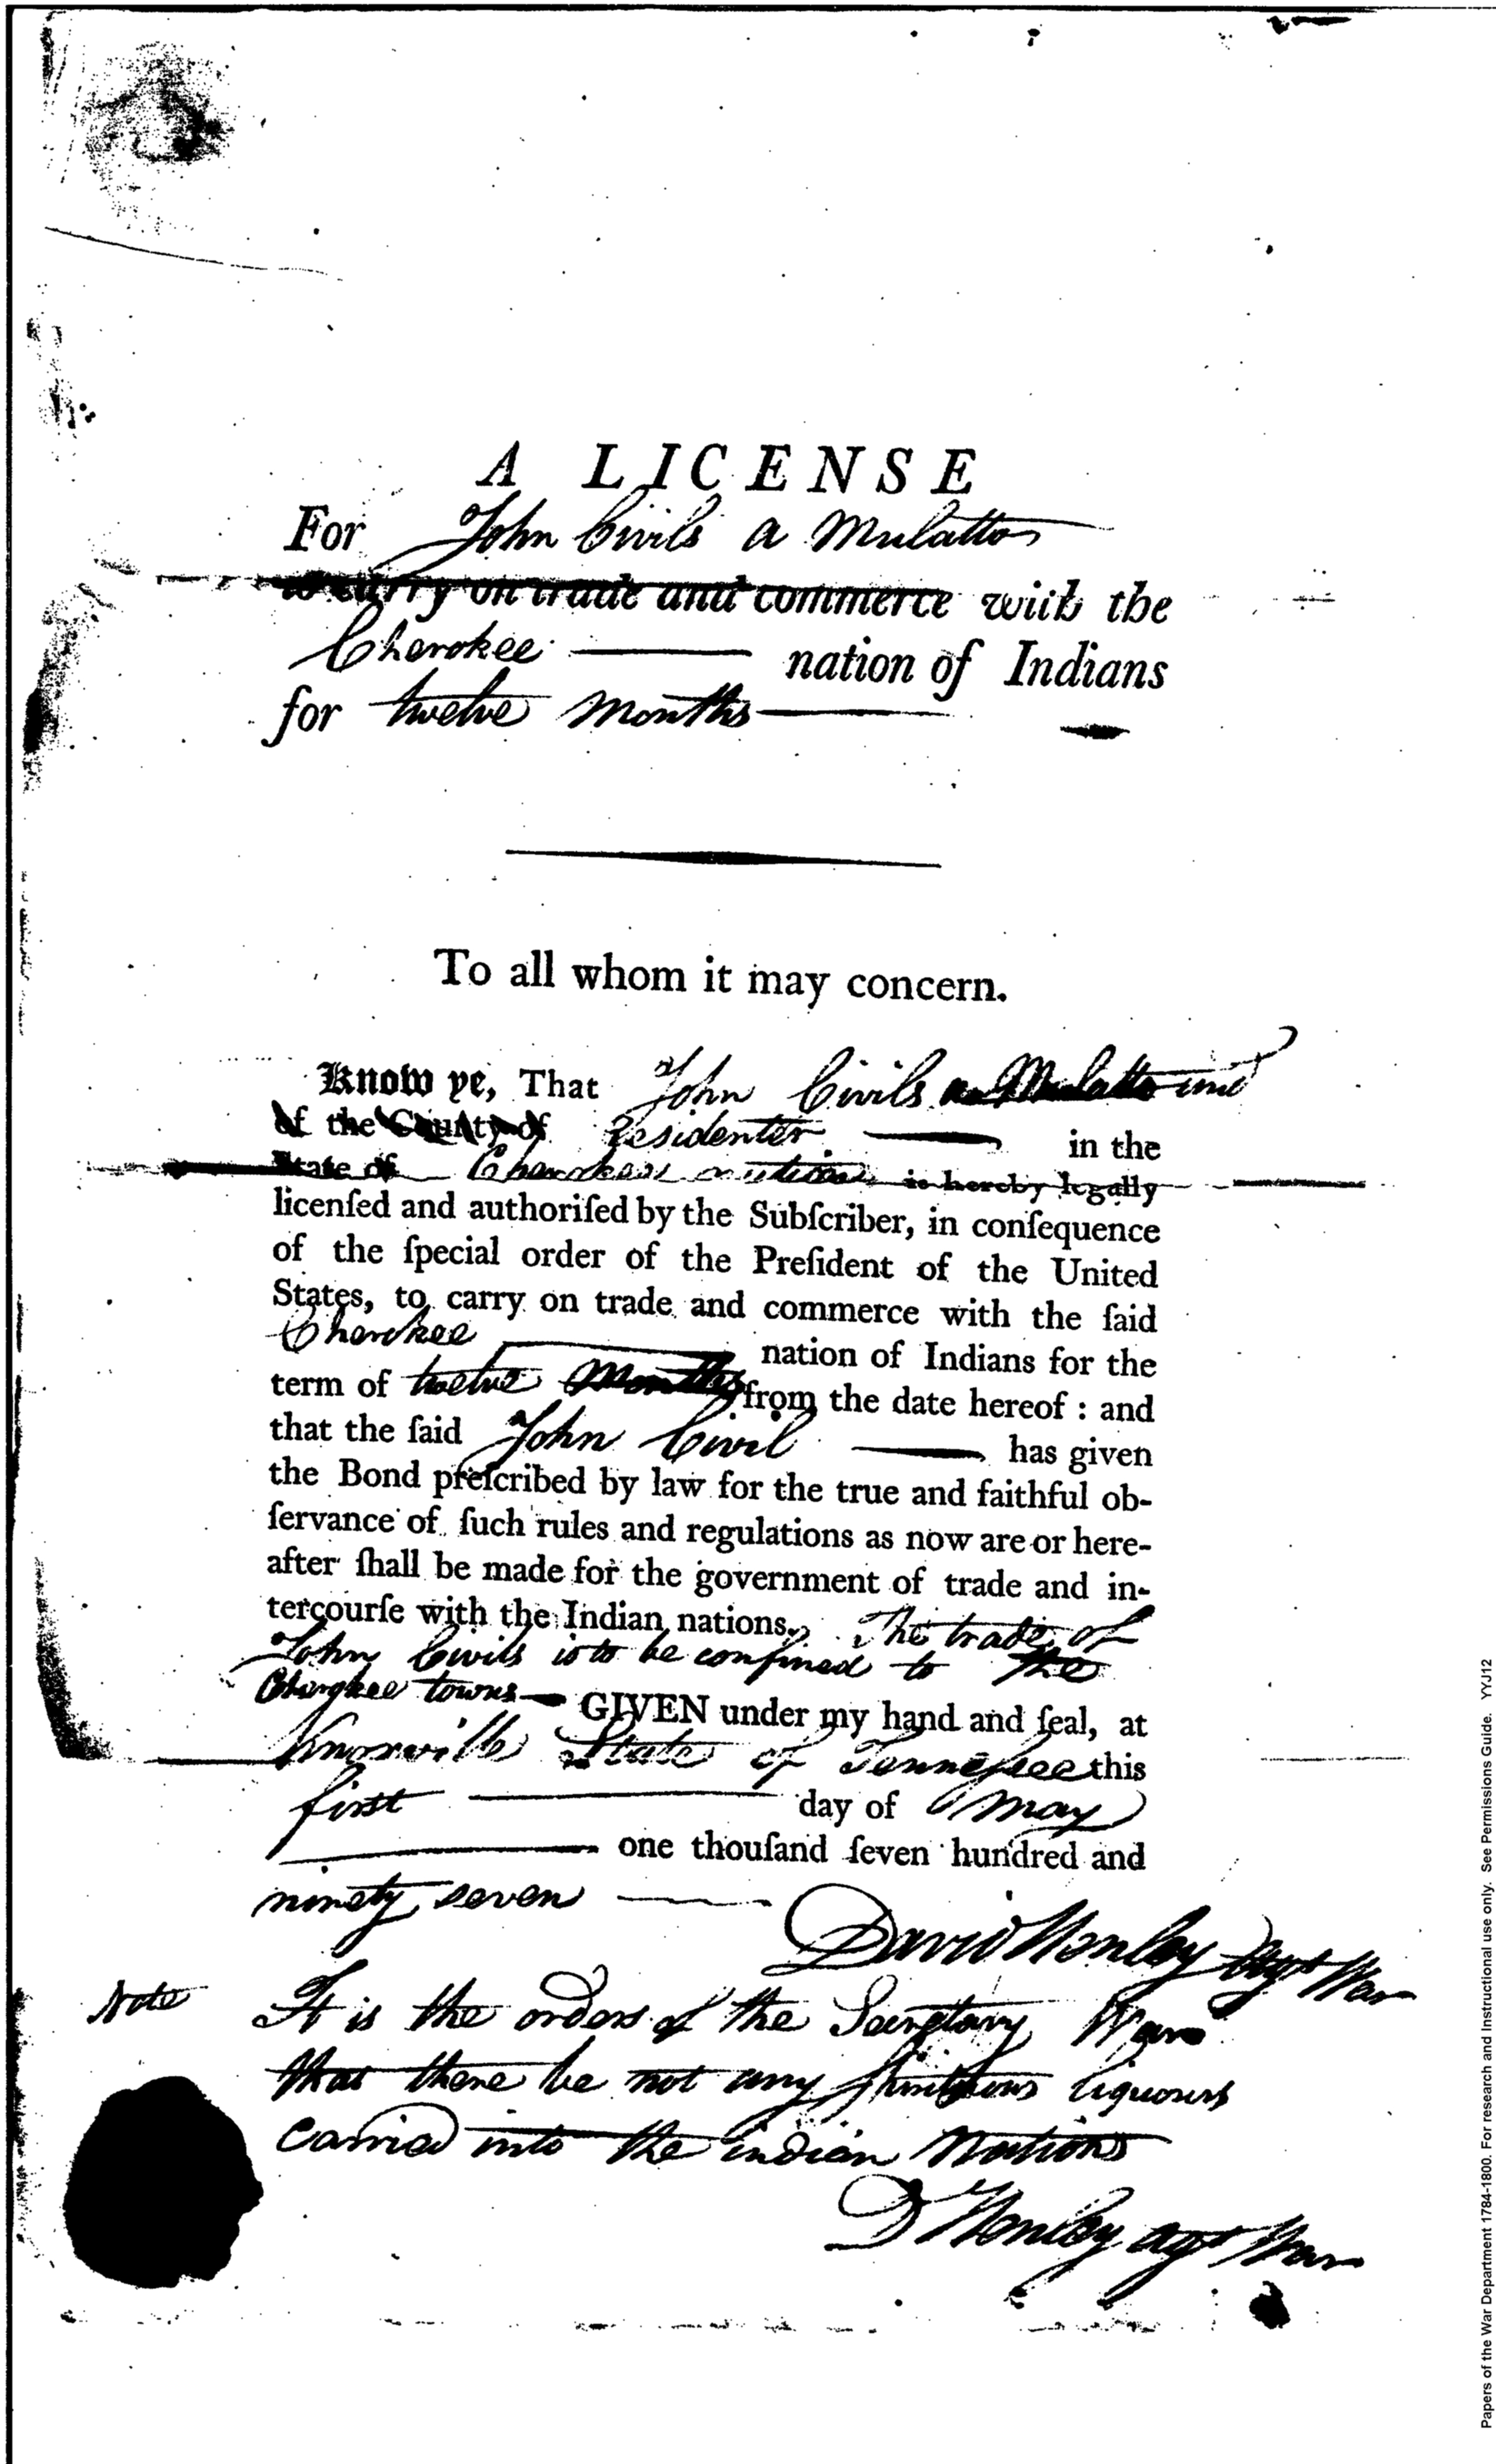 A LICENSE
For John Civils a Mulatto
to carry on trade and commerce with the
Cherokee nation of Indians
for twelve months
To all whom it may concern.
Know ye, That John Civils a Mulatto and
of the County of Residenter in the
State of Cherokee nation is hereby legally
licenſed and authoriſed by the Subſcriber, in conſequence
of the ſpecial order of the Preſident of the United
States, to carry on trade and commerce with the ſaid
Cherokee nation of Indians for the
term of twelve Months from the date hereof : and
that the ſaid John Civil has given
the Bond preſcribed by law for the true and faithful ob-
ſervance of ſuch rules and regulations as now are or here-
after ſhall be made for the government of trade and in-
tercourſe with the Indian nations. The trade of
John Civils is to be confined to the
Cherokee towns — GIVEN under my hand and ſeal, at
Knoxville State of Tenneſsee this
first day of May
one thouſand ſeven hundred and
ninety seven
David Henley Agt War
Note It is the orders of the Secretary War
that there be not any liquours
carried into the indian Nations
D Henley agt War
Papers of the War Department 1784-1800. For research and Instructional use only. See Permissions Guide. YYJ12